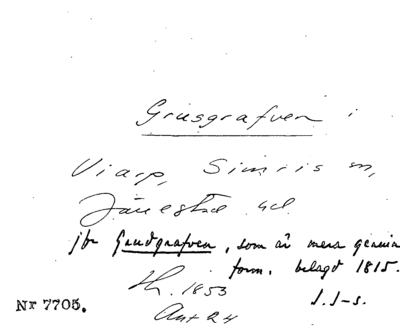 Grusgrafven i
Viarp, Simris sn,
Järrestad hd
jfr Grudgrafven, som är mera genuin
form, belagt 1815.
Th. 1853 J. J-s.
Nr 7705. Ant 24